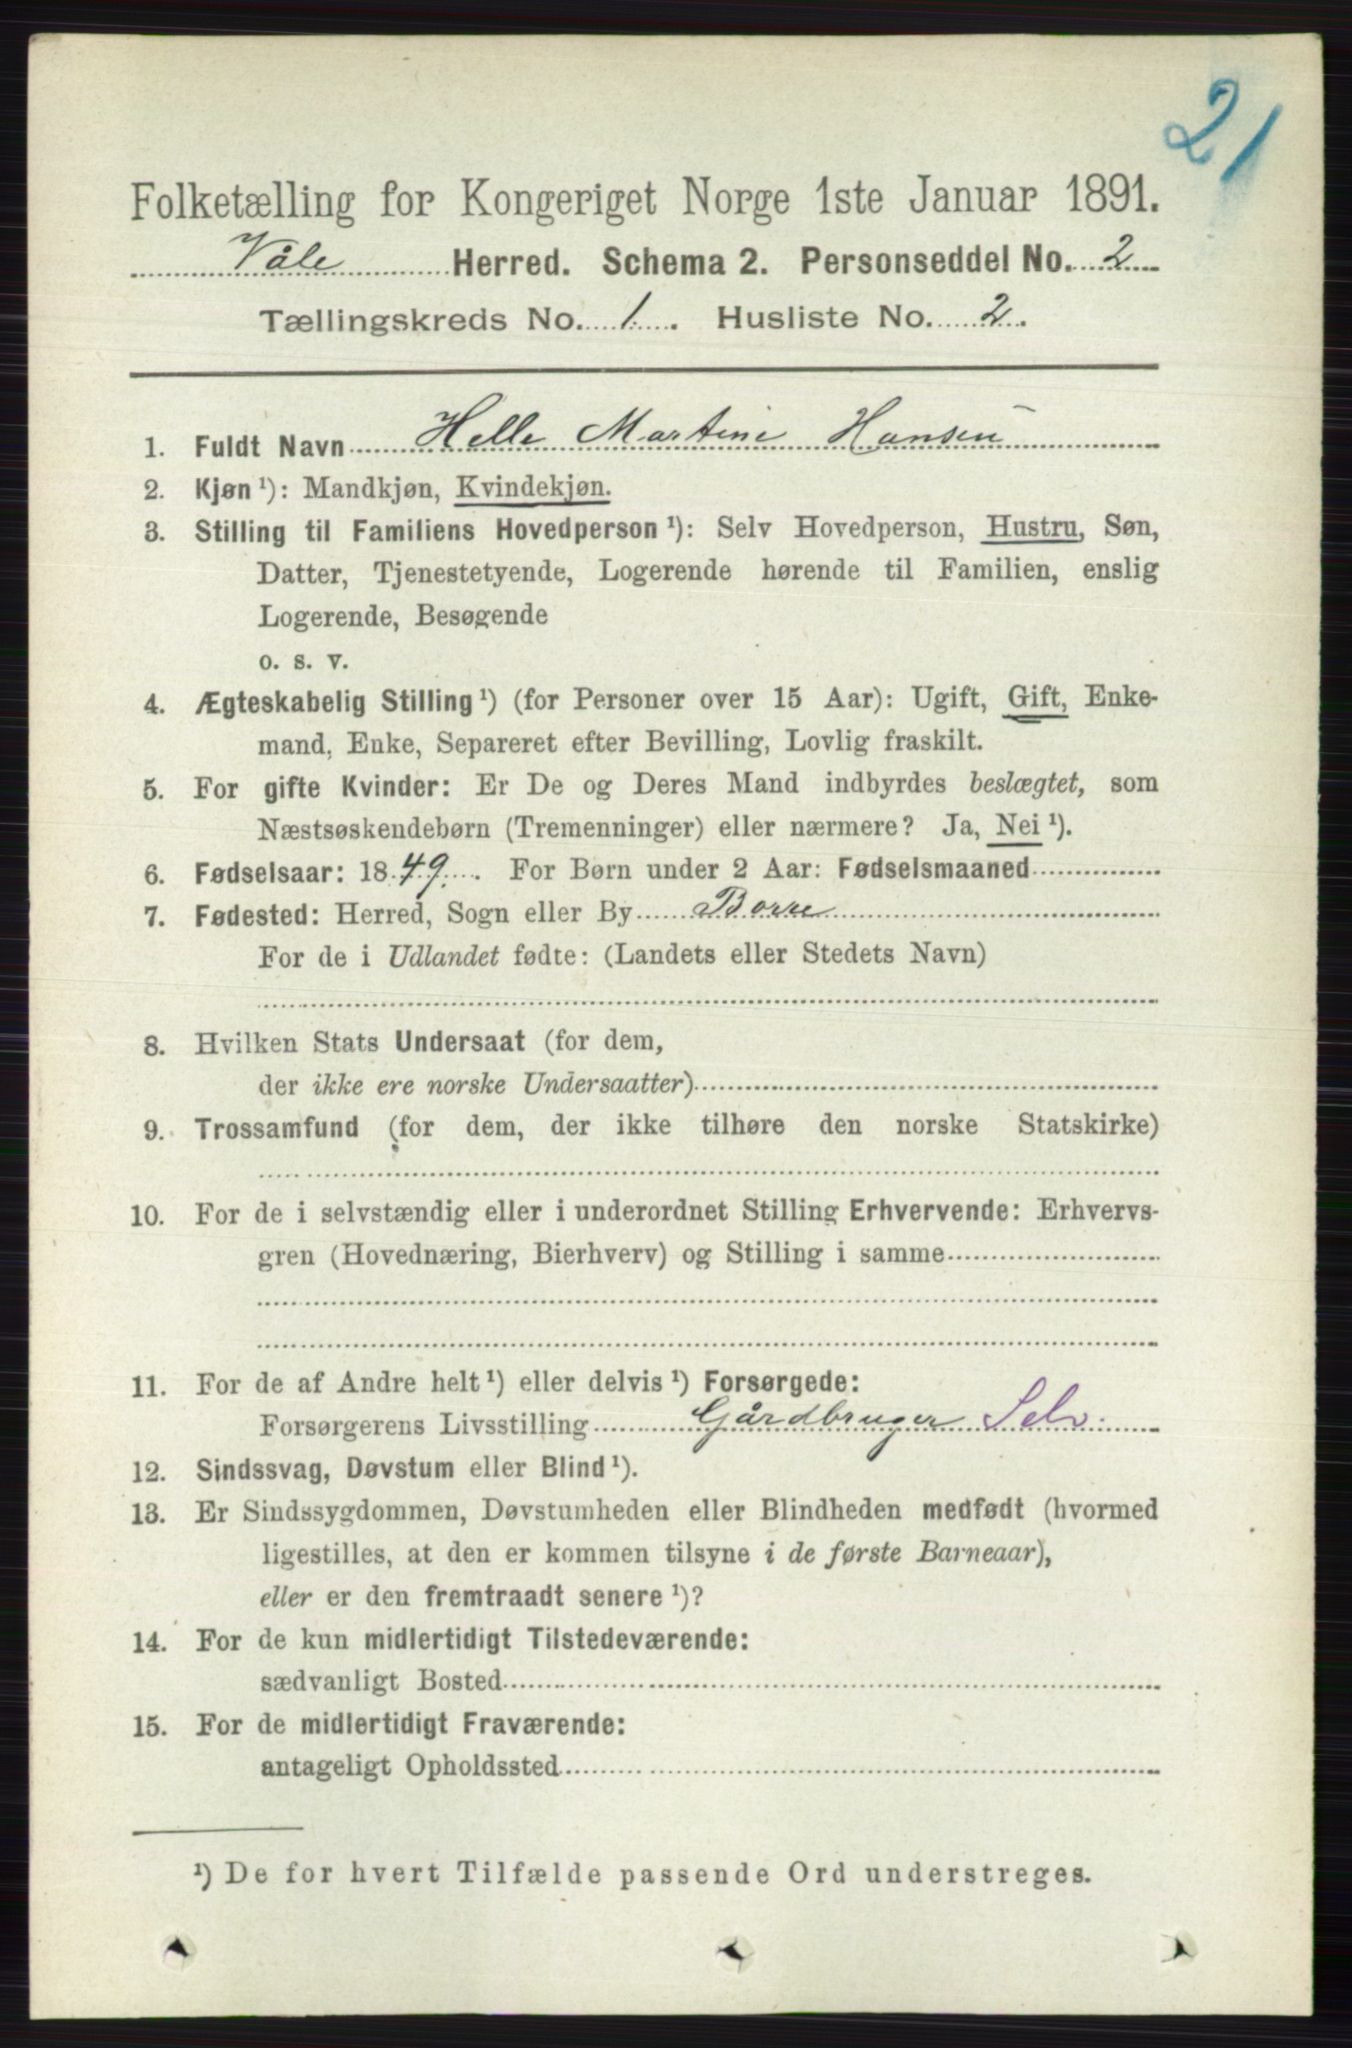 21
Folketælling for Kongeriget Norge 1ste Januar 1891.
Våle Herred. Schema 2. Personseddel No. 2
Tællingskreds No. 1. Husliste No. 2.
1. Fuldt Navn Helle Martine Hansen
2. Kjøn ¹): Mandkjøn, Kvindekjøn.
3. Stilling til Familiens Hovedperson ¹): Selv Hovedperson, Hustru, Søn,
Datter, Tjenestetyende, Logerende hørende til Familien, enslig
Logerende, Besøgende
o. s. v.
4. Ægteskabelig Stilling ¹) (for Personer over 15 Aar): Ugift, Gift, Enke-
mand, Enke, Separeret efter Bevilling, Lovlig fraskilt.
5. For gifte Kvinder: Er De og Deres Mand indbyrdes beslægtet, som
Næstsøskendebørn (Tremenninger) eller nærmere? Ja, Nei ¹).
6. Fødselsaar: 1849. For Børn under 2 Aar: Fødselsmaaned
7. Fødested: Herred, Sogn eller By Borre
For de i Udlandet fødte: (Landets eller Stedets Navn)
8. Hvilken Stats Undersaat (for dem,
der ikke ere norske Undersaatter)
9. Trossamfund (for dem, der ikke tilhøre den norske Statskirke)
10. For de i selvstændig eller i underordnet Stilling Erhvervende: Erhvervs-
gren (Hovednæring, Bierhverv) og Stilling i samme
11. For de af Andre helt ¹) eller delvis ¹) Forsørgede:
Forsørgerens Livsstilling Gårdbruger Selv.
12. Sindssvag, Døvstum eller Blind ¹).
13. Er Sindssygdommen, Døvstumheden eller Blindheden medfødt (hvormed
ligestilles, at den er kommen tilsyne i de første Barneaar),
eller er den fremtraadt senere ¹)?
14. For de kun midlertidigt Tilstedeværende:
sædvanligt Bosted
15. For de midlertidigt Fraværende:
antageligt Opholdssted
¹) De for hvert Tilfælde passende Ord understreges.